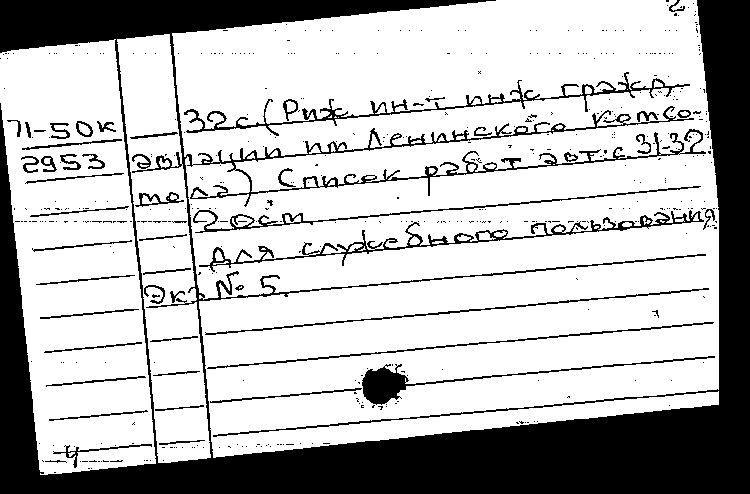 2
71-50к 32 с. (Риж. ин-т инж. гражд.
2953 авиации им Ленинского комсо-
мола) Список работ авт.: с 31-32
20 см
Для служебного пользования
Экз № 5.
4